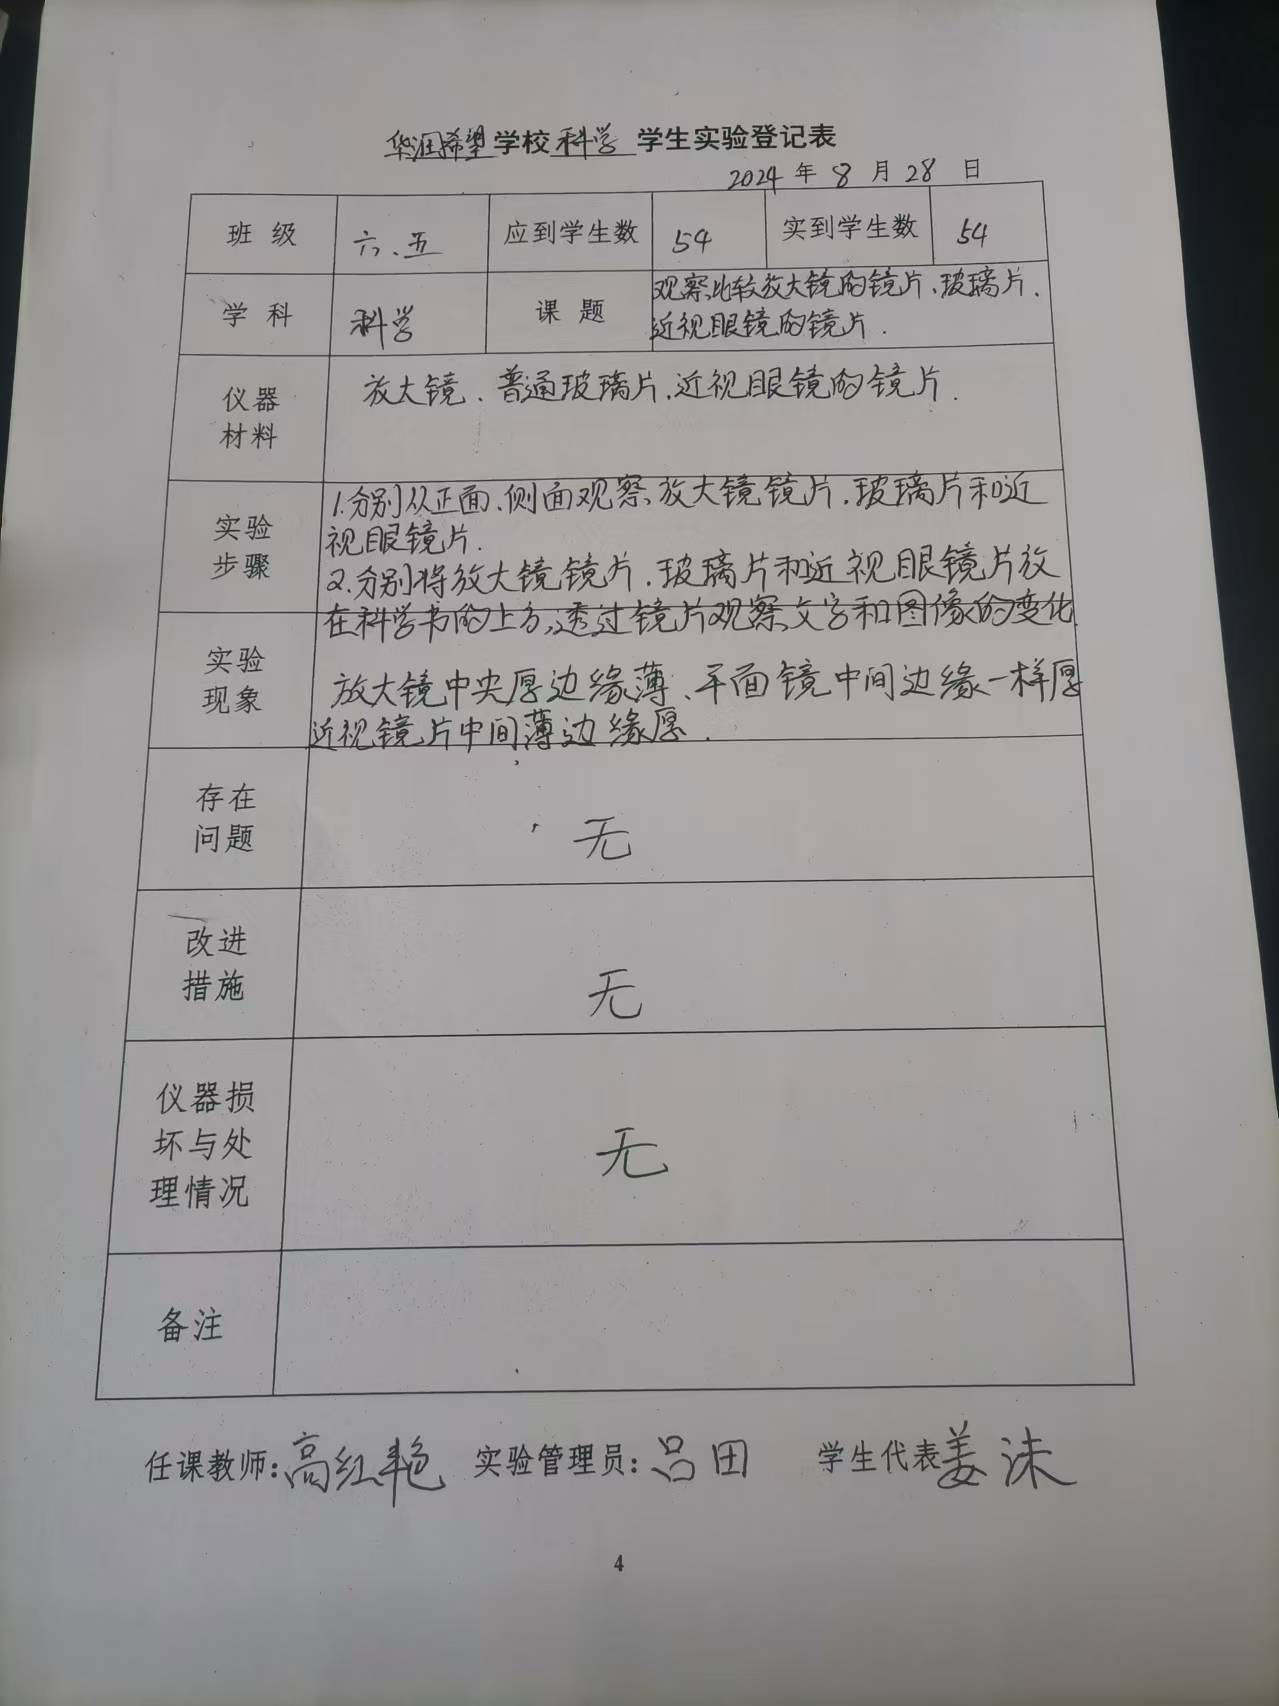 华润希望学校科学 学生实验登记表
2024 年 8 月 28 日
班 级 六.五 应到学生数 54 实到学生数 54
学 科 科学 课 题 观察比较放大镜的镜片、玻璃片、
近视眼镜的镜片.
仪器
材料
放大镜、普通玻璃片、近视眼镜的镜片.
实验
步骤
1.分别从正面、侧面观察放大镜镜片、玻璃片和近
视眼镜片.
2.分别将放大镜镜片、玻璃片和近视眼镜片放
在科学书的上方,透过镜片观察文字和图像的变化
实验
现象
放大镜中央厚边缘薄、平面镜中间边缘一样厚
近视镜片中间薄边缘愿.
存在
问题
无
改进
措施
无
仪器损
坏与处
理情况
无
备注
任课教师:高红艳 实验管理员:吕田 学生代表姜沫
4